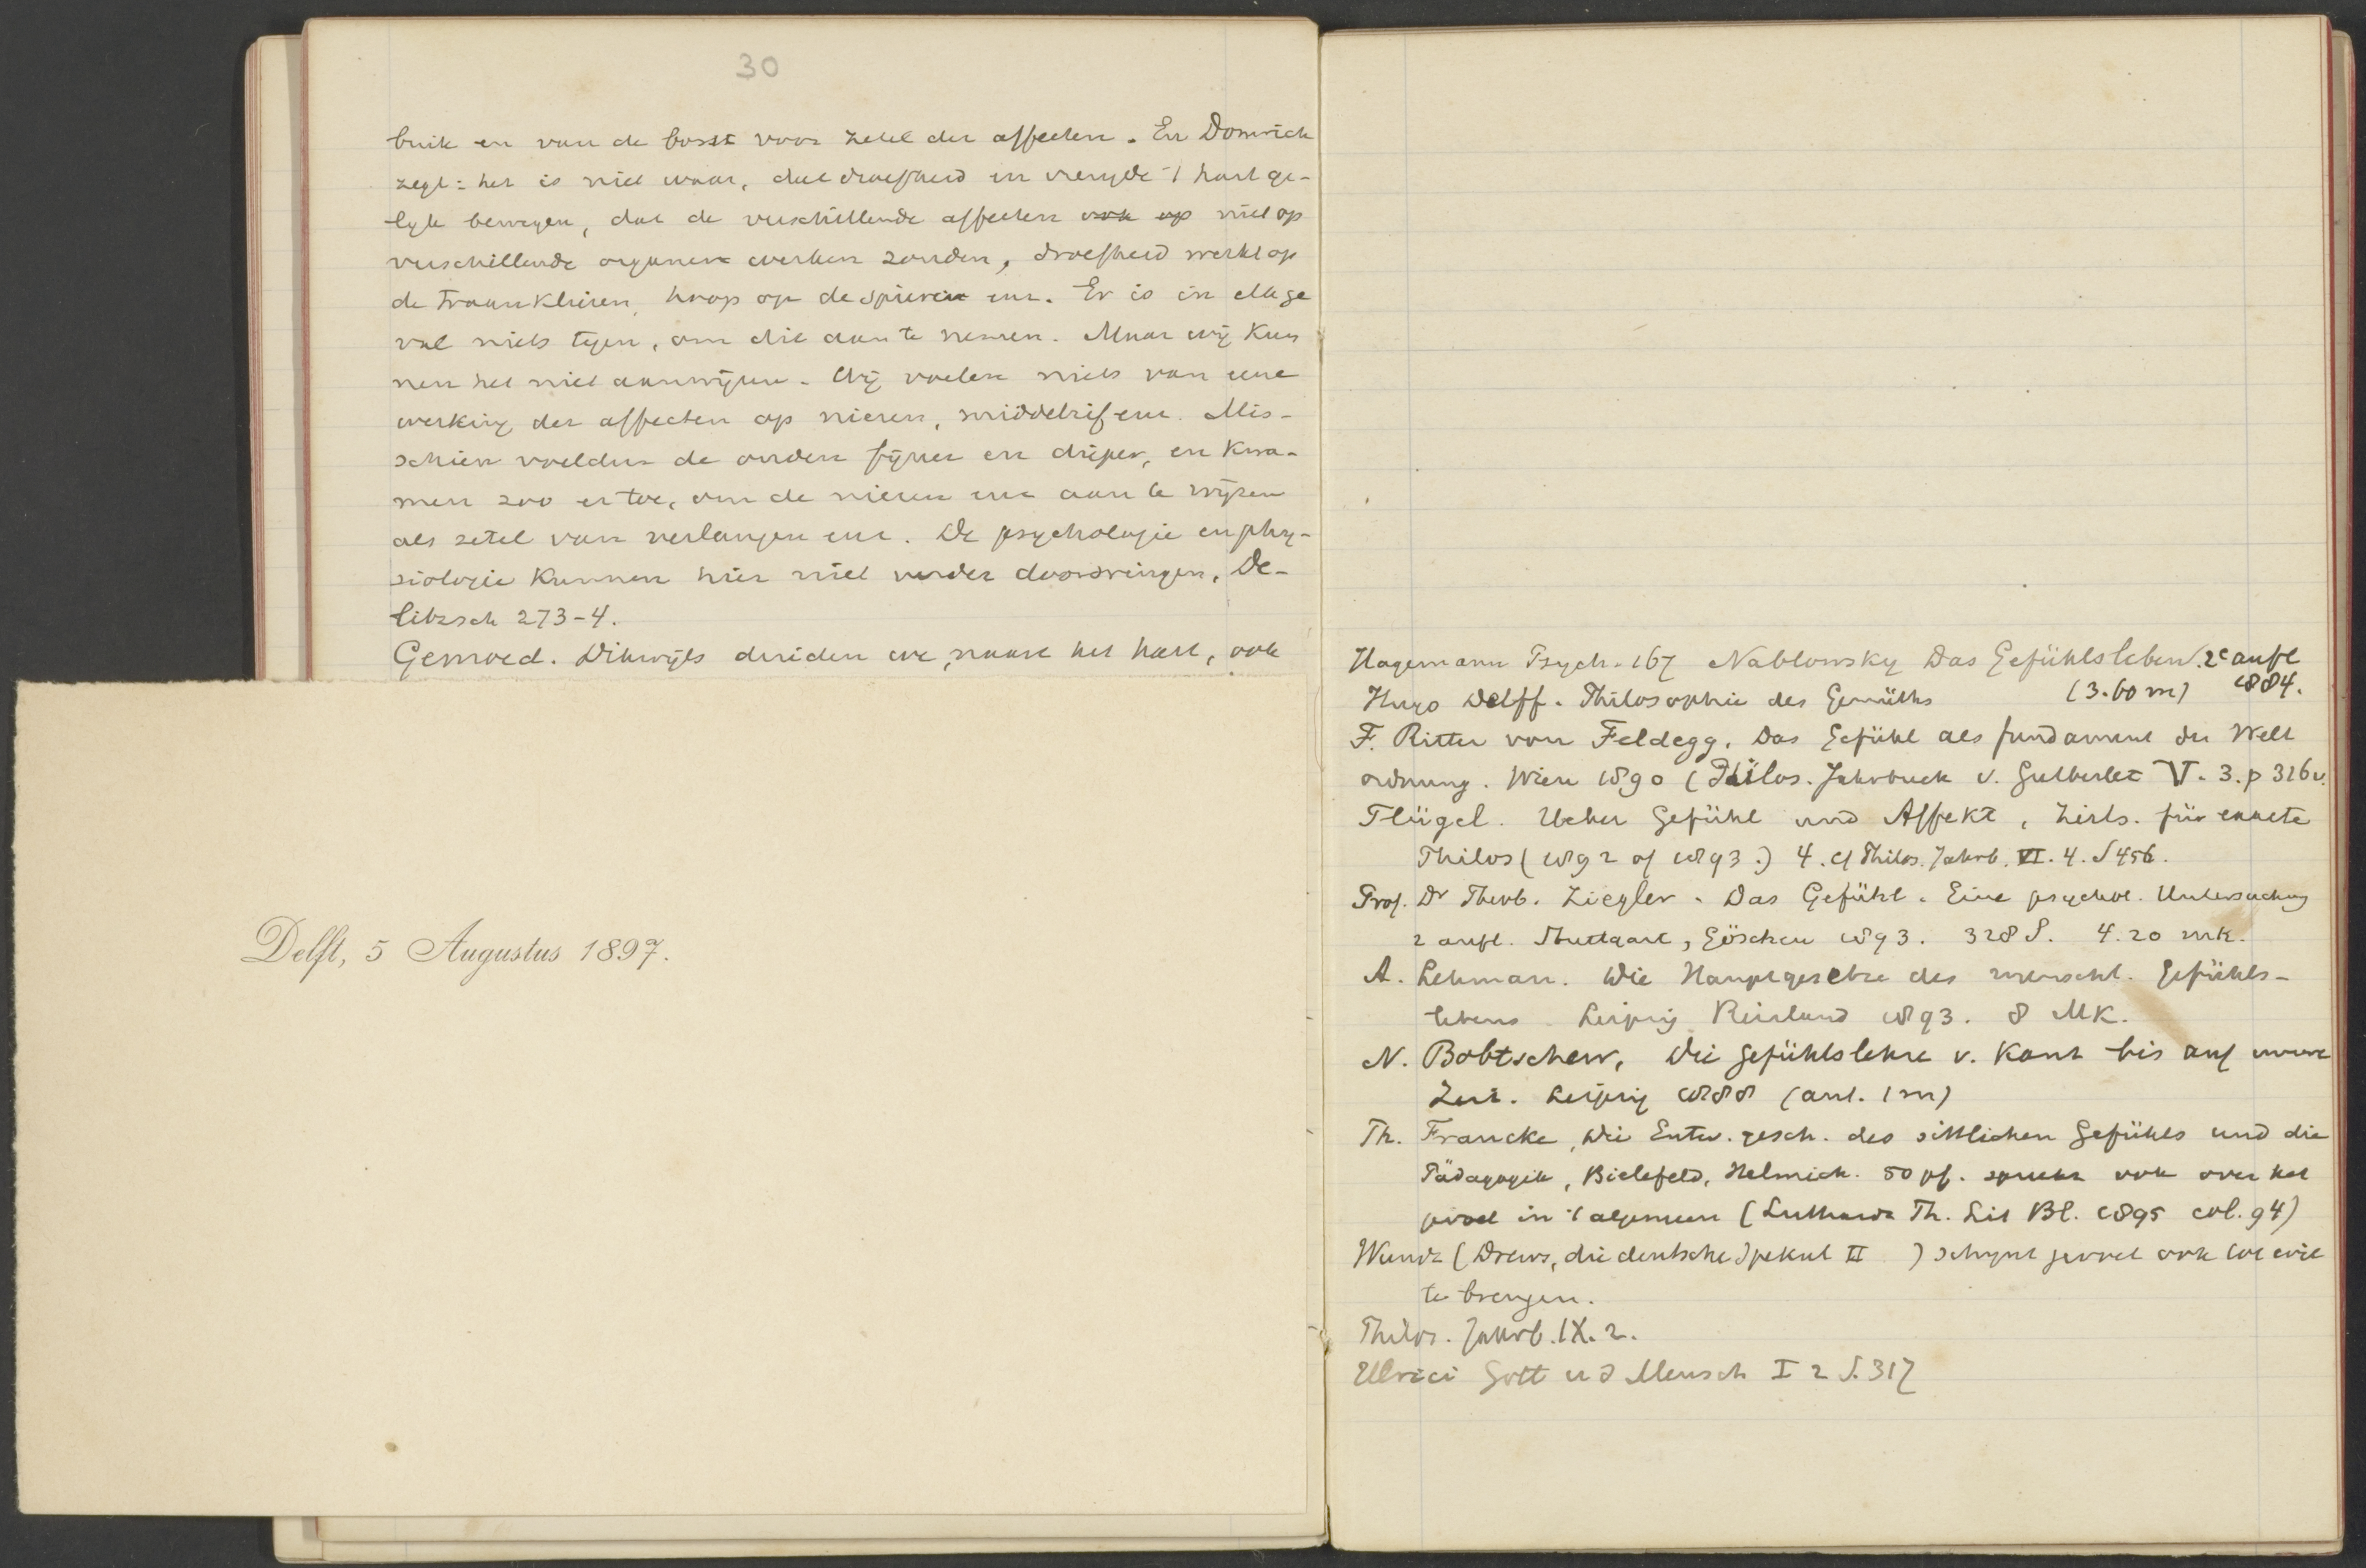 30
buik en van de borst voor zetel der affecten. En Domrich
zegt: het is niet waar, dat droefheid en vreugde 't hart ge-
lyk bewegen, dat de verschillende affecten ook op niet op
verschillende organen werken zouden, droefheid werkt op
de traanklieren, hoop op de spieren enz. Er is in elk ge
val niets tegen, om dit aan te nemen. Maar wij kun
nen het niet aanwijzen. Wij voelen niets van eene
werking der affecten op nieren, middelrif enz. Mis-
schien voelden de ouden fijner en dieper, en kwa-
men zoo er toe, om de nieren enz aan te wijzen
als zetel van verlangen enz. De psychologie en phy-
siologie kunnen hier niet verder doordringen, De-
litzsch 273-4.
Gemoed. Dikwijls duiden we, naast het hart, ook
Delft, 5 Augustus 1897.
Hagemann Psych. 167 Nahlowsky Das Gefühlsleben. 2e aufl
1884.
Hugo Delff. Philosophie des Gemüths (3.60 m)
F. Ritter von Feldegg. Das Gefühl als fundament der Welt
ordnung. Wien 1890 (Philos. Jahrbuch v. Gutberlet V. 3. p 326 v.
Flügel. Ueber Gefühl und Affekt, Zeits. für exacte
Philos (1892 of 1893.) 4. cf Philos. Jahrb. VI. 4. S 456.
Prof. Dr Theob. Ziegler. Das Gefühl. Eine psychol. Untersuchung
2 aufl. Stuttgart, Göschen 1893. 328 S. 4.20 mk.
A. Lehman. Die Hauptgesetze des menschl. Gefühls-
lebens. Leipzig Reisland 1893. 8 MK.
N. Bobtschew, Die Gefühlslehre v. Kant bis auf unsre
Zeit. Leipzig 1888 (ant. 1 m)
Th. Francke, Die Entw. gesch. des sittlichen Gefühls und die
Pädagogik, Bielefeld, Helmich. 50 pf. spreekt ook over het
gevoel in 't algemeen (Luthardt Th. Lit Bl. 1895 col. 94)
Wundt (Drews, die deutsche Spekul II ) schynt gevoel ook tot wil
te brengen.
Philos. Jahrb. IX. 2.
Ulrici Gott u d Mensch I 2 S. 317